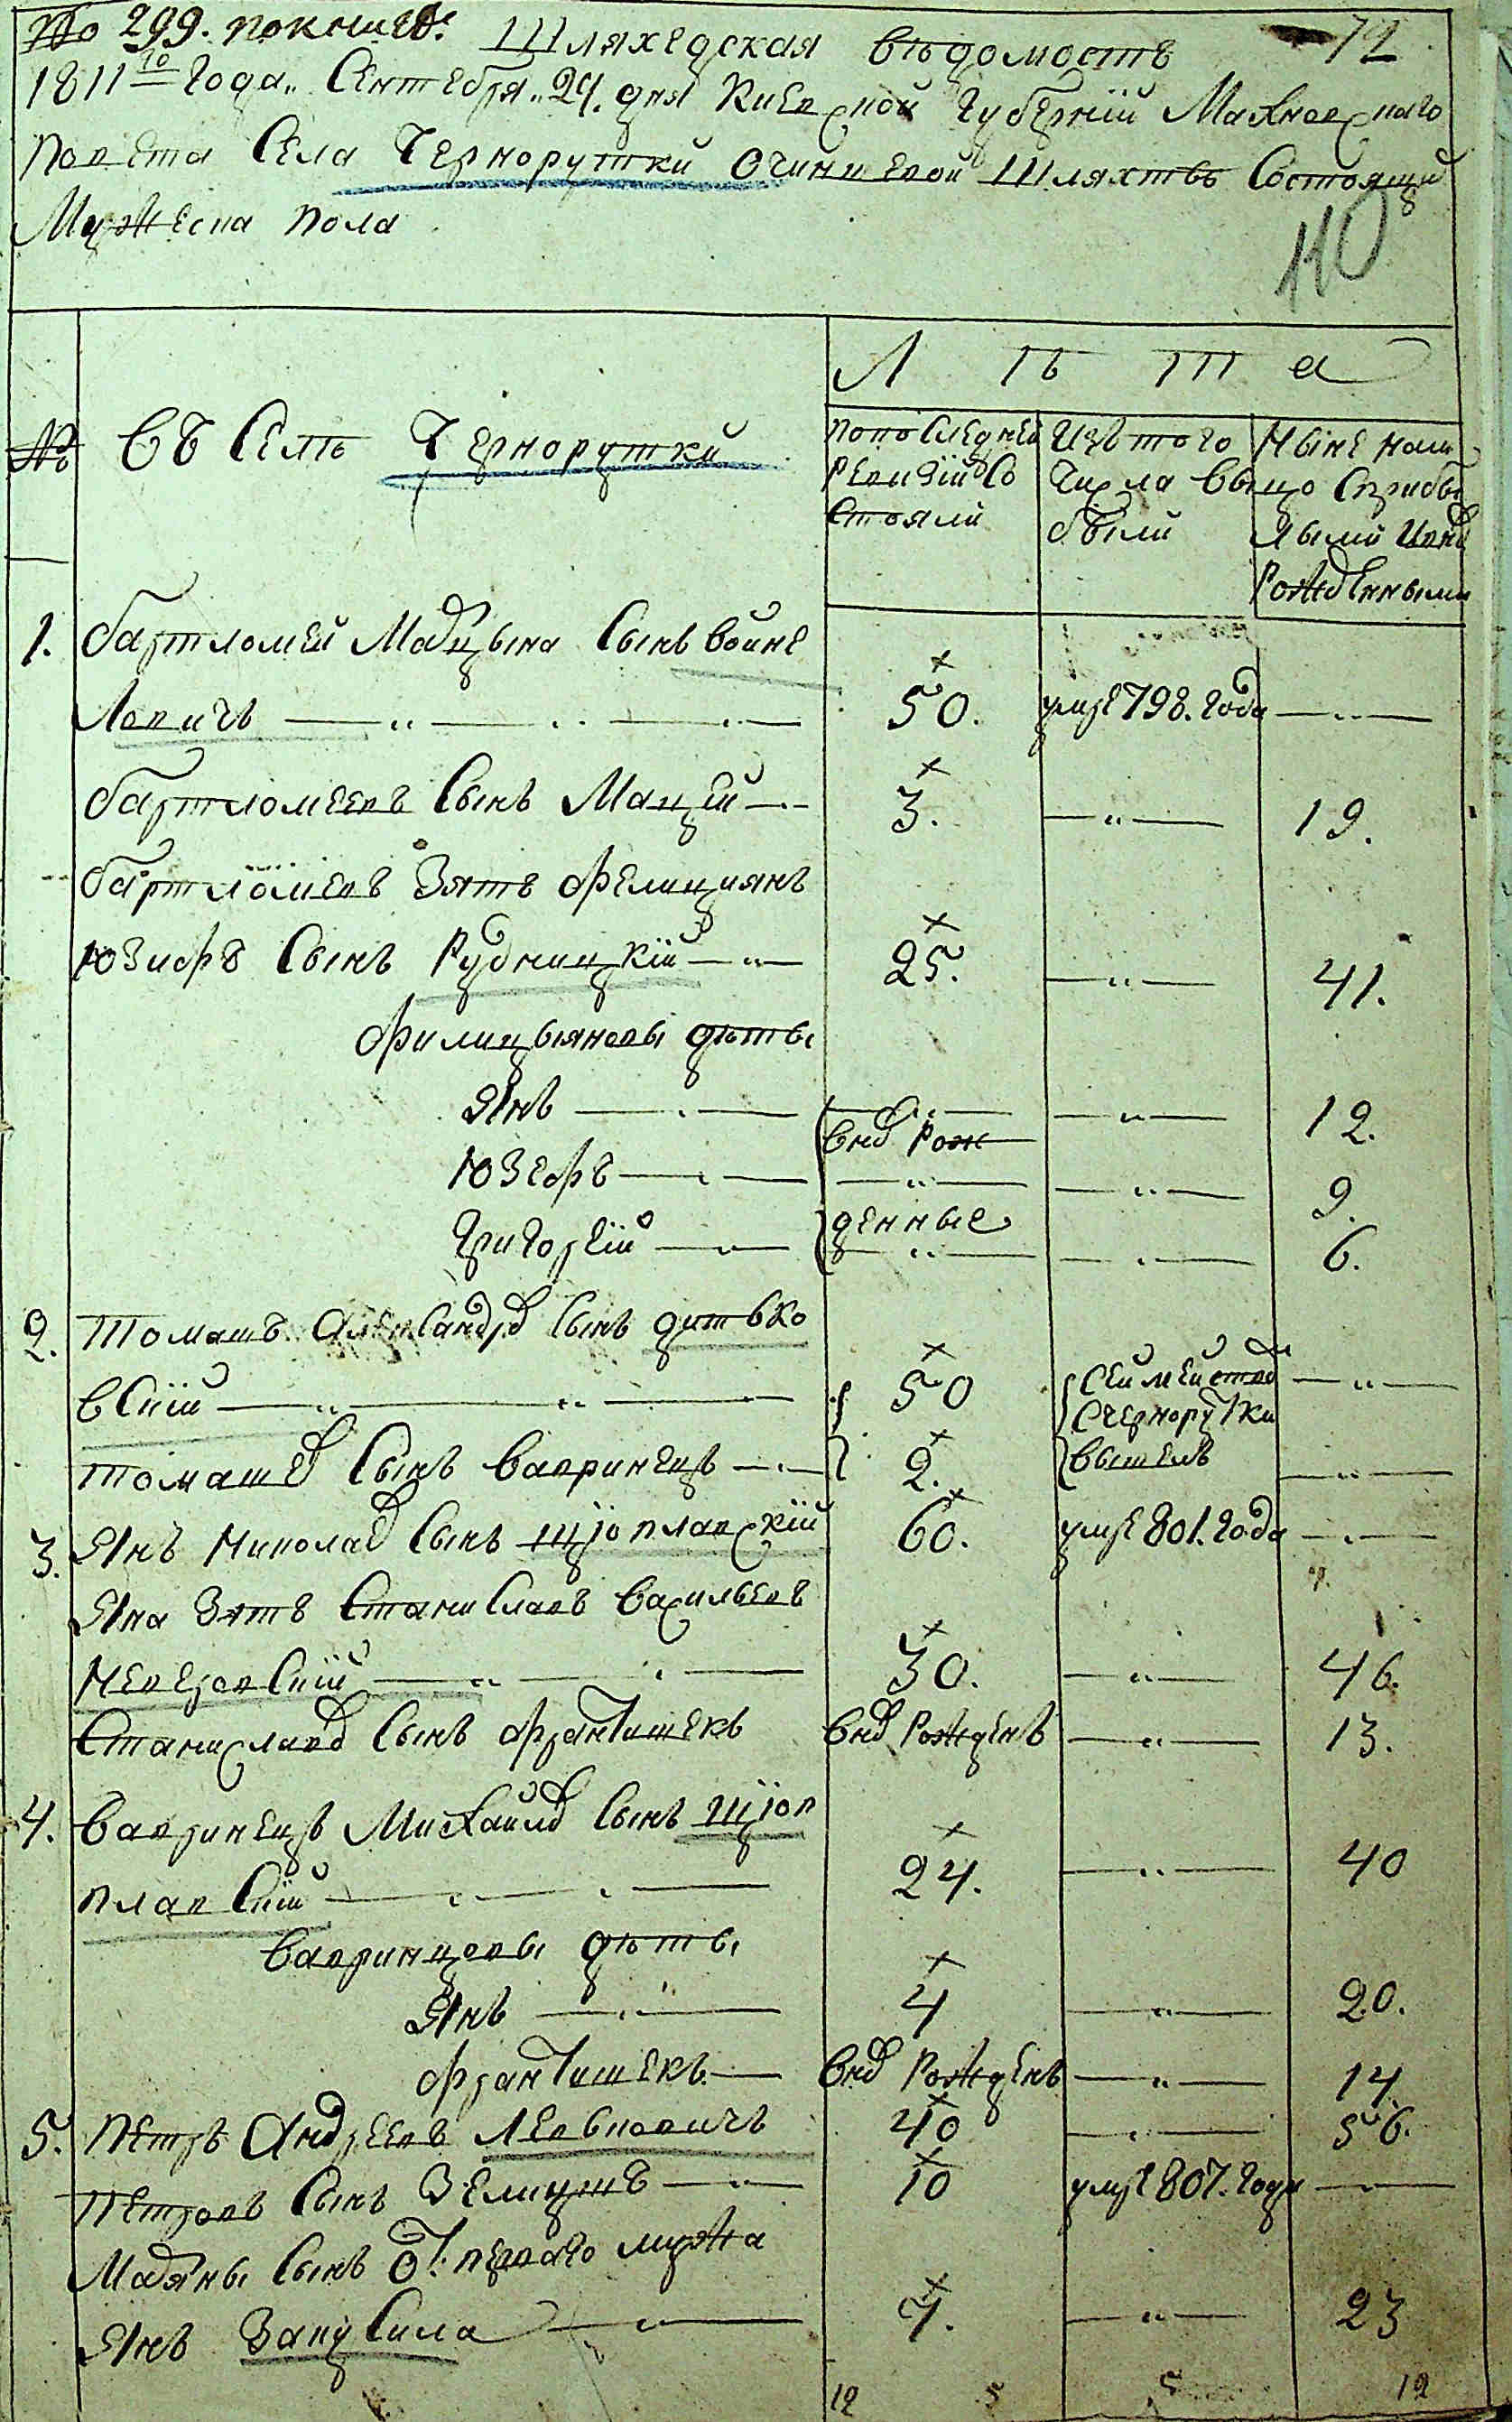 № 299. по книге. Шляхедская ведомость 72
1811го года„ Сентебря „24. дня Киевской Губернии Махновского
Повета Села Чернорутки Очиншевой Шляхтѣ Состоящей
Мужеска пола
110
Л ѣ т а
№ Въ Селѣ Чернорутки
По последней Ревизии Состояли
Изъ того Числа выбыли
Ныне налицо Сприбылыми иновь Рожденными
1. Бартломей Мацѣя Сынъ Войне
Лович 50. умре 798. года
Бартломеевъ Сынъ Мацей 3. 19.
Бартломеевъ Зять Фелициянъ
Юзифъ Сынъ Рудницкий 25. 41.
Филицияновы дѣты
Янъ внов Рож 12.
Юзефъ 9.
Григорей денные 6.
2. Томашъ Александр Сынъ Дитько
вский 50 Сем
Счернорутки
Томашев Сынъ Вавринецъ 2. Вышелъ
3. Янъ Николаев Сынъ 60. умре 801. года
Яна Зять Станиславъ Васильевъ
30. 46.
Станиславов Сынъ Франтишекъ внов Рожденъ 13.
4. Вавринецъ Михайлов Сынъ
плавский 24. 40
Вавринцовы дѣты
Янъ 4 20.
Франтишекъ внов Рожденъ 14
5. Петръ Андреевъ Левковичъ 40 56.
Петровъ Сынъ 10 умре 807. года
Сынъ От первого мужа
Янъ 7. 23
12 5 5 12